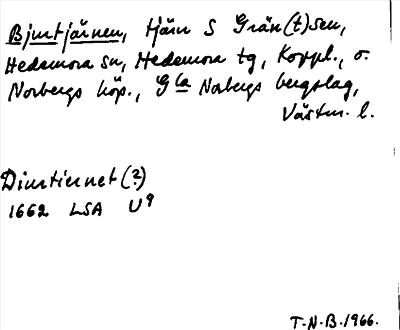 Bjurtjärnen, tjärn S Grän(t)sen,
Hedemora sn, Hedemora tg, Koppl., o.
Norbergs köp., Gla Norbergs bergslag,
Västm. l.
Diurtiernet (?)
1662 LSA U9
T.N.B. 1966.